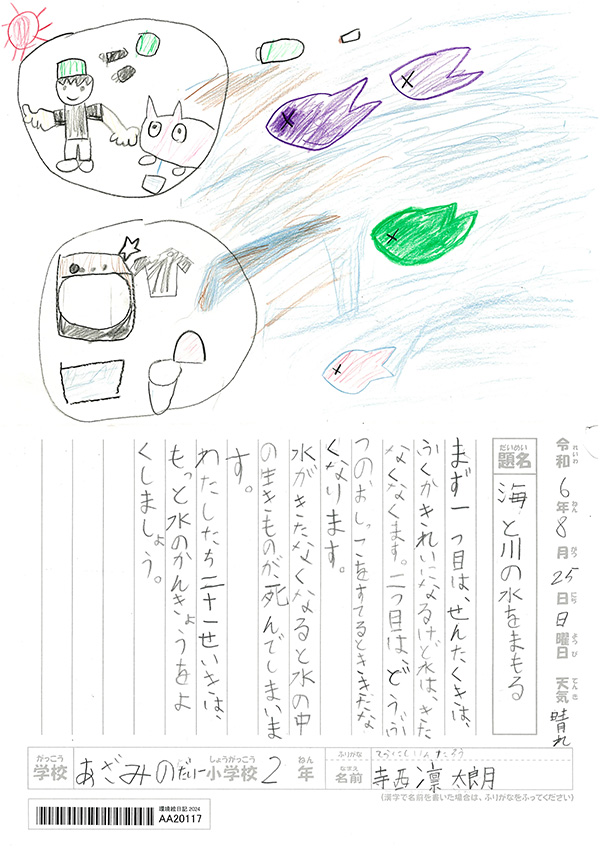 令和6年8月25日日曜日 天気 晴れ
れいわ ねん がつ にち ようび てんき
だいめい
題名 海と川の水をまもる
まず一つ目は、せんたくきは、
ふくがきれいになるけど水は、きた
なくなくます。二つ目は、どうぶ
つのおしっこをすてるときたな
くなります。
水がきたなくなると水の中
の生きものが、死んでしまいま
す。
わたしたち二十一せいきは、
もっと水のかんきょうをよ
くしましょう。
がっこう しょうがっこう ねん
学校 あざみのだい一小学校 2年
ふりがな てらにしりんたろう
なまえ
名前 寺西凛太朗
(漢字で名前を書いた場合は、ふりがなをふってください)
環境絵日記 2024
AA20117